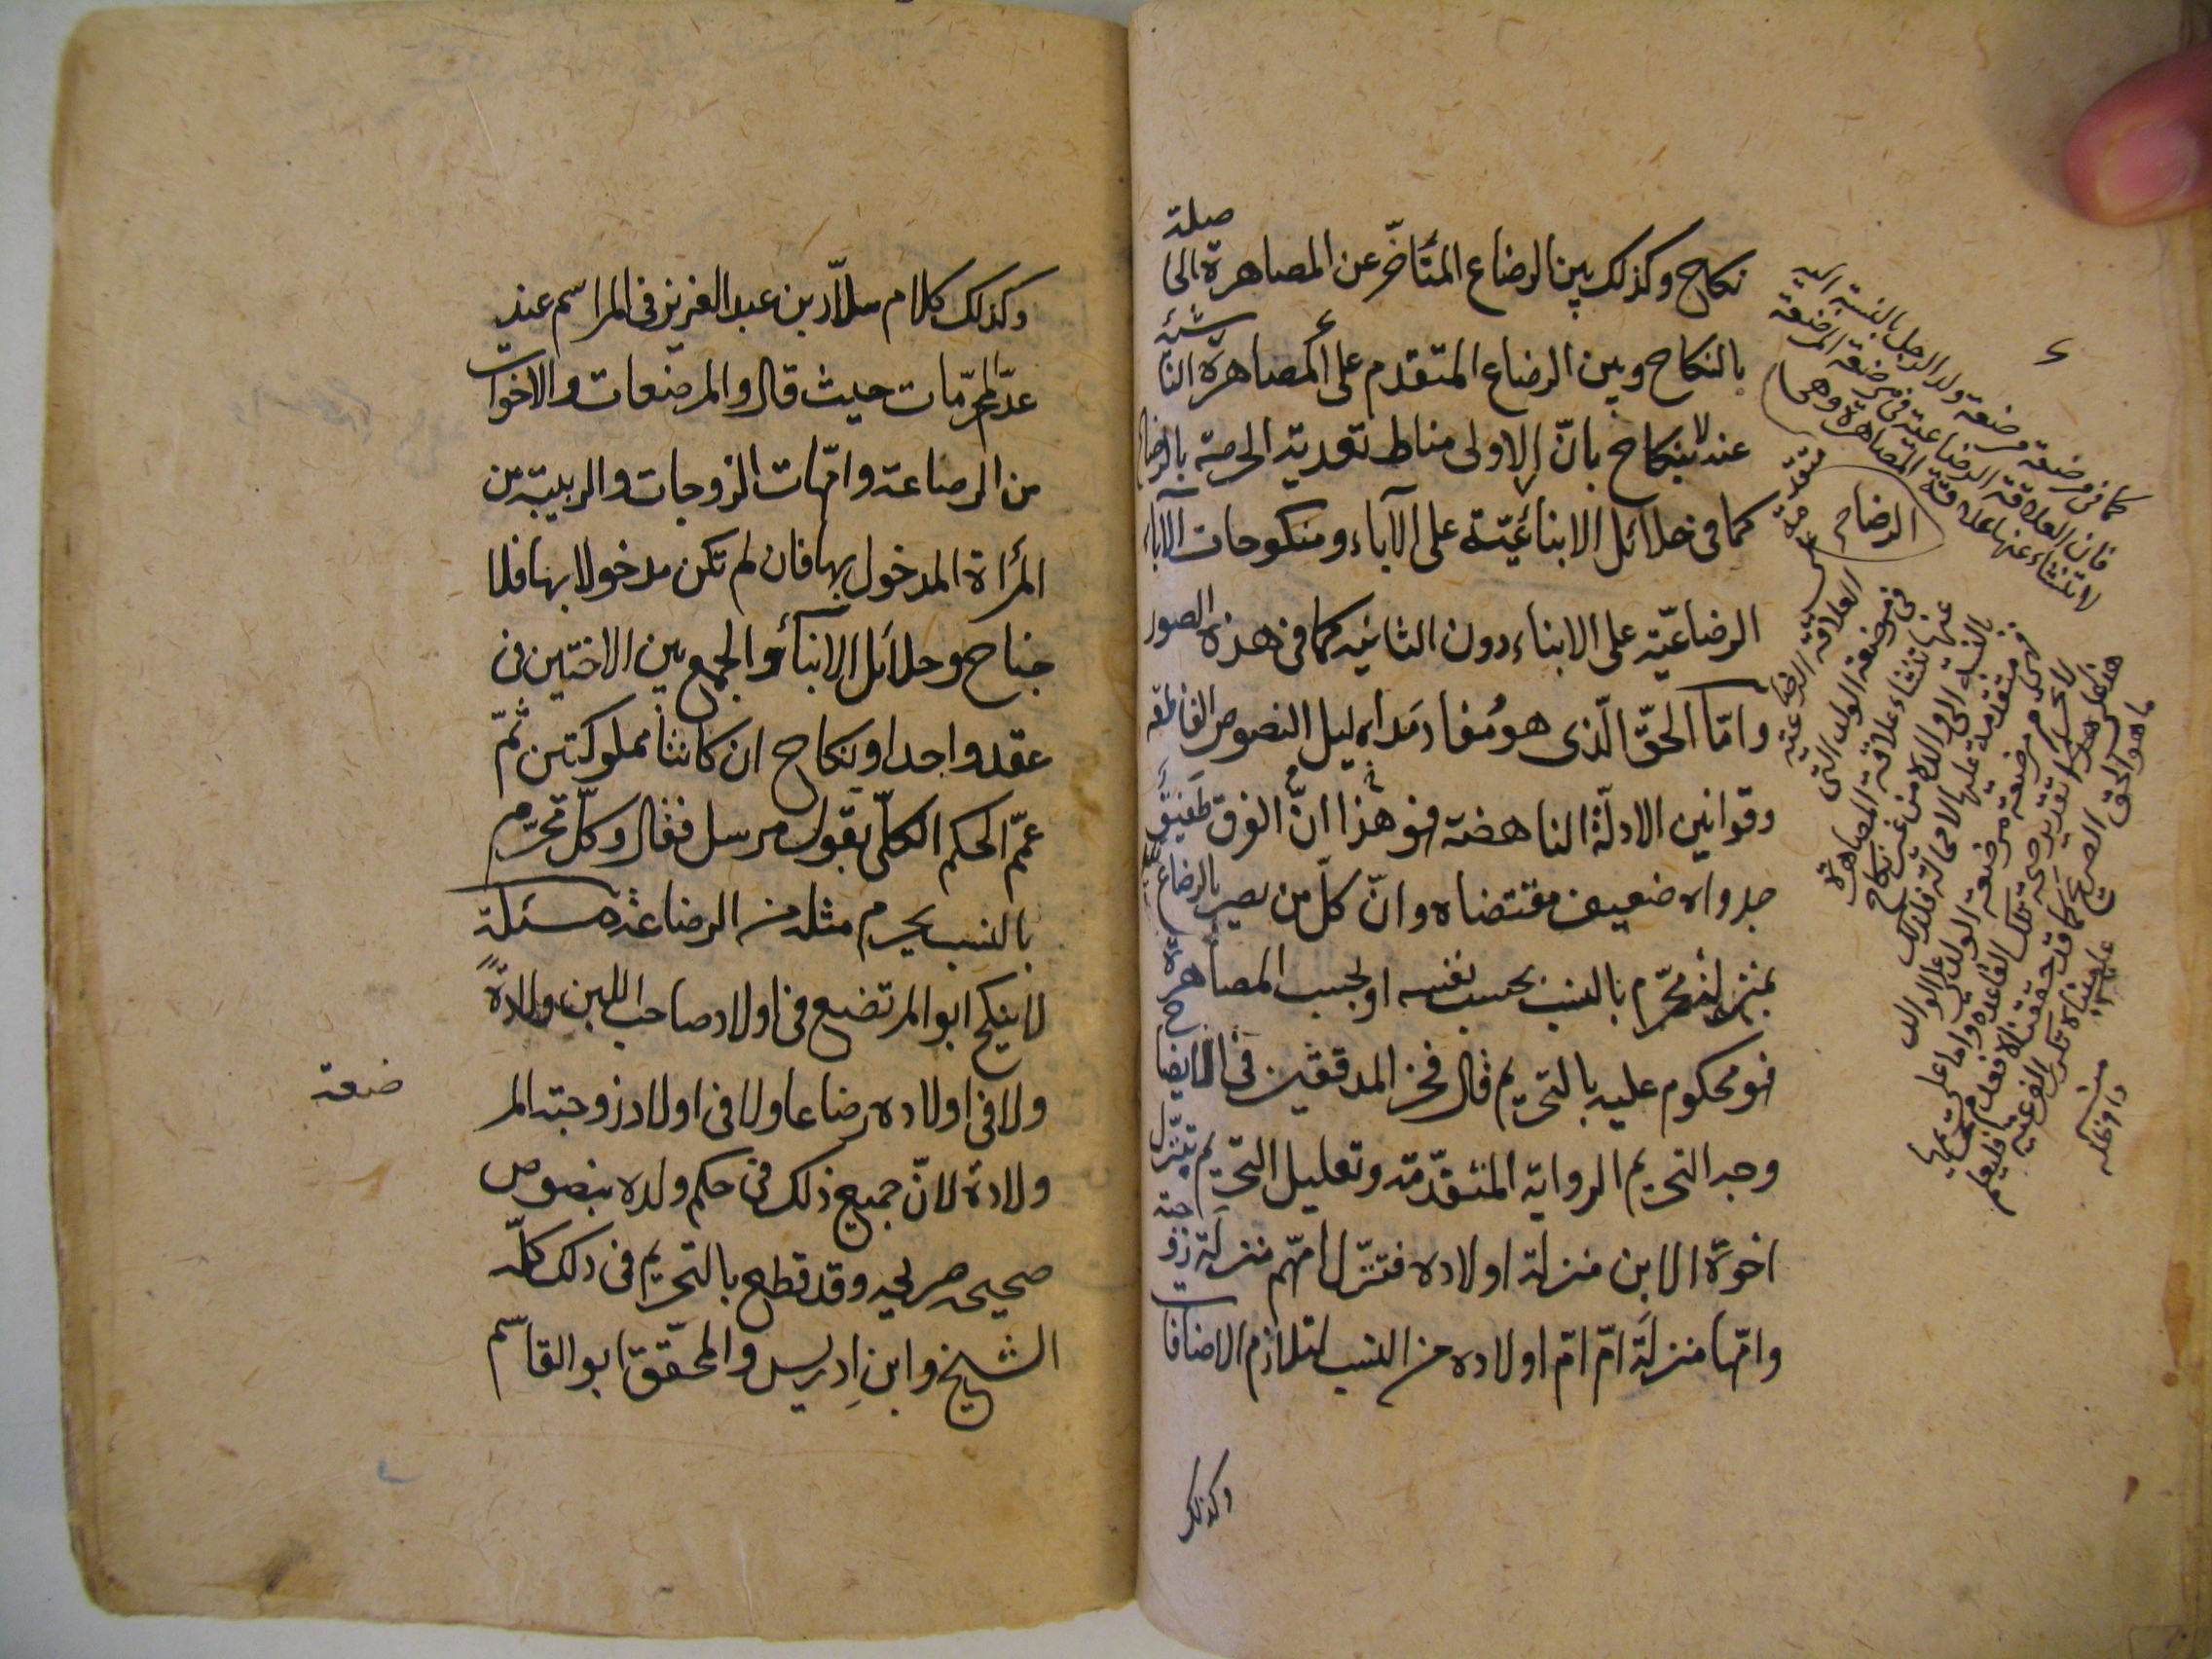 نكاح وكذلك بين الرضاع المتأخّر عن المصاهرة الحاصلة
بالنكاح وبين الرضاع المتقدم على المصاهرة الناشئة
عند لا بنكاح بانّ الاولى مناط تعدية الحرمة بالرضاع
كما فى حلائل الابناء على الآباء ومنكوحات الآباء
الرضاعيّة على الابناء دون الثانيه كما فى هذه الصور
وامّا الحقّ الّذى هو مُفاد النصوص
وقوانين الادلّة الناهضة فهو هذا انّ الفرق طفيف
جدواه ضعيف مقتضاه وانّ كلّ من يصير بالرضاع
بمنزلة محرّم بالنسب بحسب نفسه او بحسب المصاهرة
فهو محكوم عليه بالتحريم قال فخر المدققين فى الايضاح
وجه التحريم الرواية المتقدّمة وتعليل التحريم بتنزّل
اخوّة الابن منزلة اولاده فتنزّل امّهم منزلة زوجته
وامّها منزلة امّ امّ اولاده من النسب لتلازم الاضافات
وكذلك
كما فى مرضعة مرضعة ولد الرجل بالنسبة اليه
فان العلاقة الرضاعية فى مرضعة المرضعة
لا تنشاء عنها علاقة المصاهرة وهى
متقدمة على
الرضاع
العلاقة الرضاعية
فى مرضعة الولد التى
عنها تنشاء علاقة المصاهرة
بالنسبة الى الوالد من غير نكاح
فهى متقدمة عليها لا محالة فلذلك
لا تحرم مرضعة مرضعة الولد على الوالد
هذا على تقدير صحة تلك القاعدة واما على
ما هو الحق الصريح كما قد حققناه
منه
دام ظله
وكذلك كلام سلاّر بن عبد العزيز فى المراسم عند
عدّ المحرّمات حيث قال والمرضعات والاخوات
من الرضاعة وامّهات الزوجات والربيبة من
المرأة المدخول بها فان لم تكن مدخولا بها فلا
جناح وحلائل الابناء والجمع بين الاختين فى
عقد واحد او نكاح ان كانتا مملوكتين ثمّ
عمّم الحكم الكلّى بقول مرسل فقال وكلّ تحريم
بالنسب يحرم مثله من الرضاعة مسئلة
لا ينكح ابو المرتضع فى اولاد صاحب اللبن ولادةً
ولا فى اولاده رضاعا ولا فى اولاد زوجته المر
ضعة
ولادة لانّ جميع ذلك فى حكم ولده بنصوص
صحيحه صريحه وقد قطع بالتحريم فى ذلك كلّه
الشيخ وابن اِدريس والمحقّق ابو القاسم